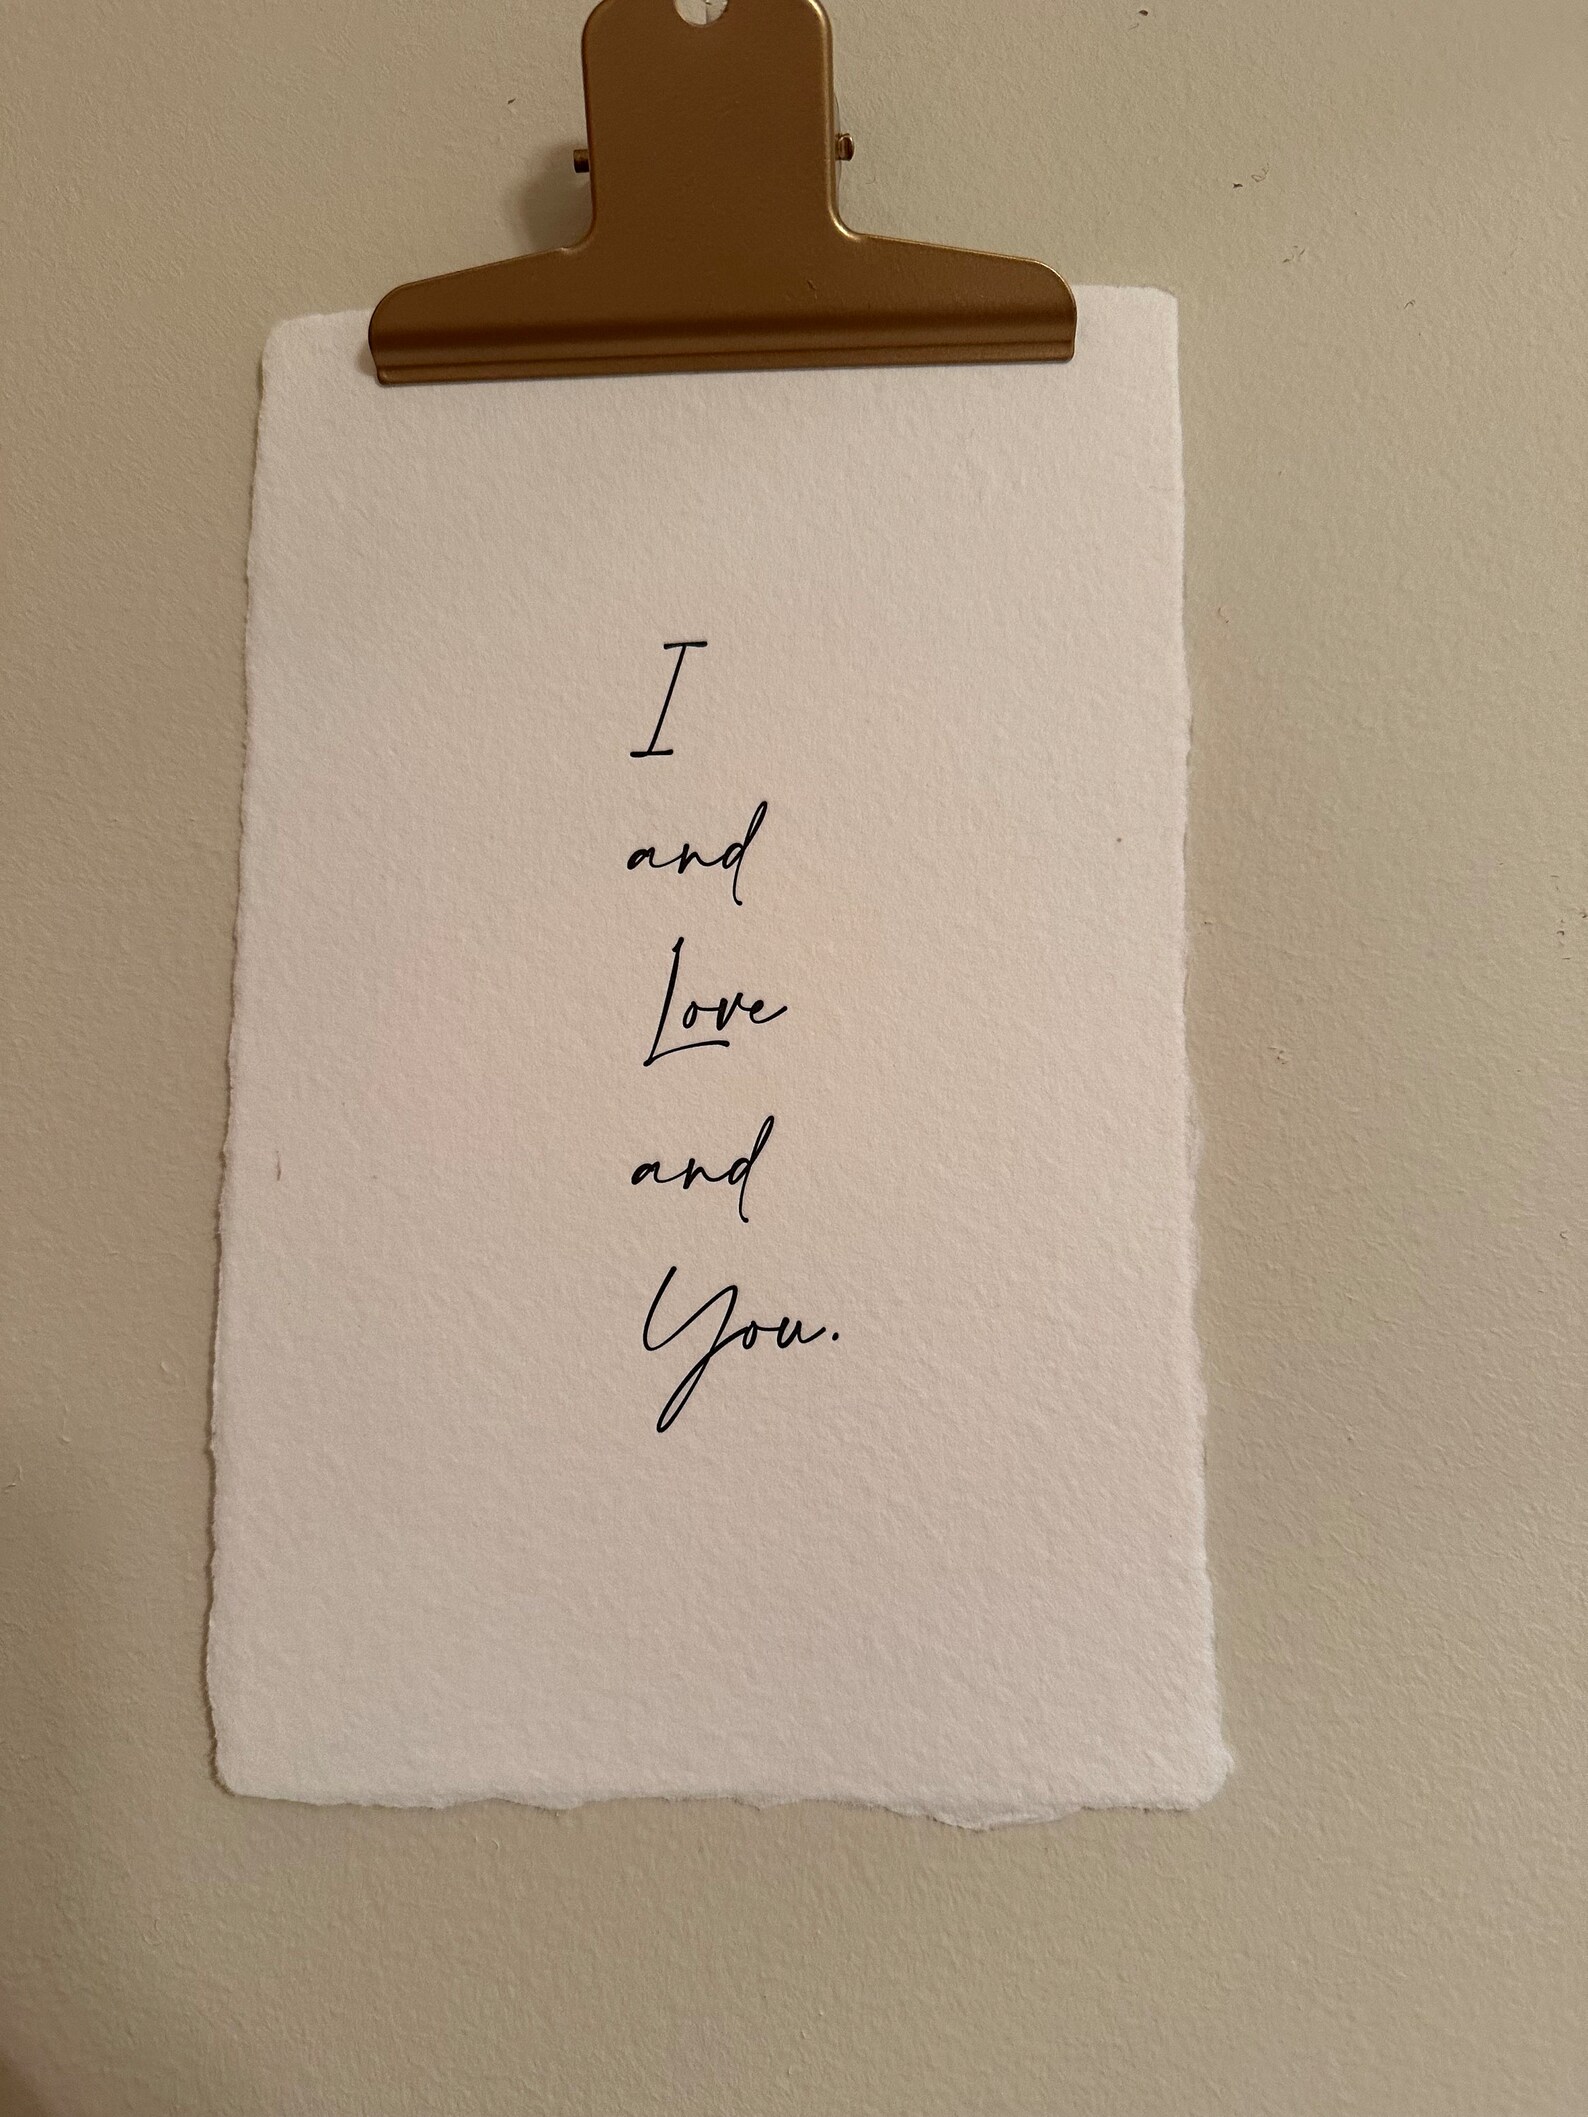 I
and
Love
and
You.